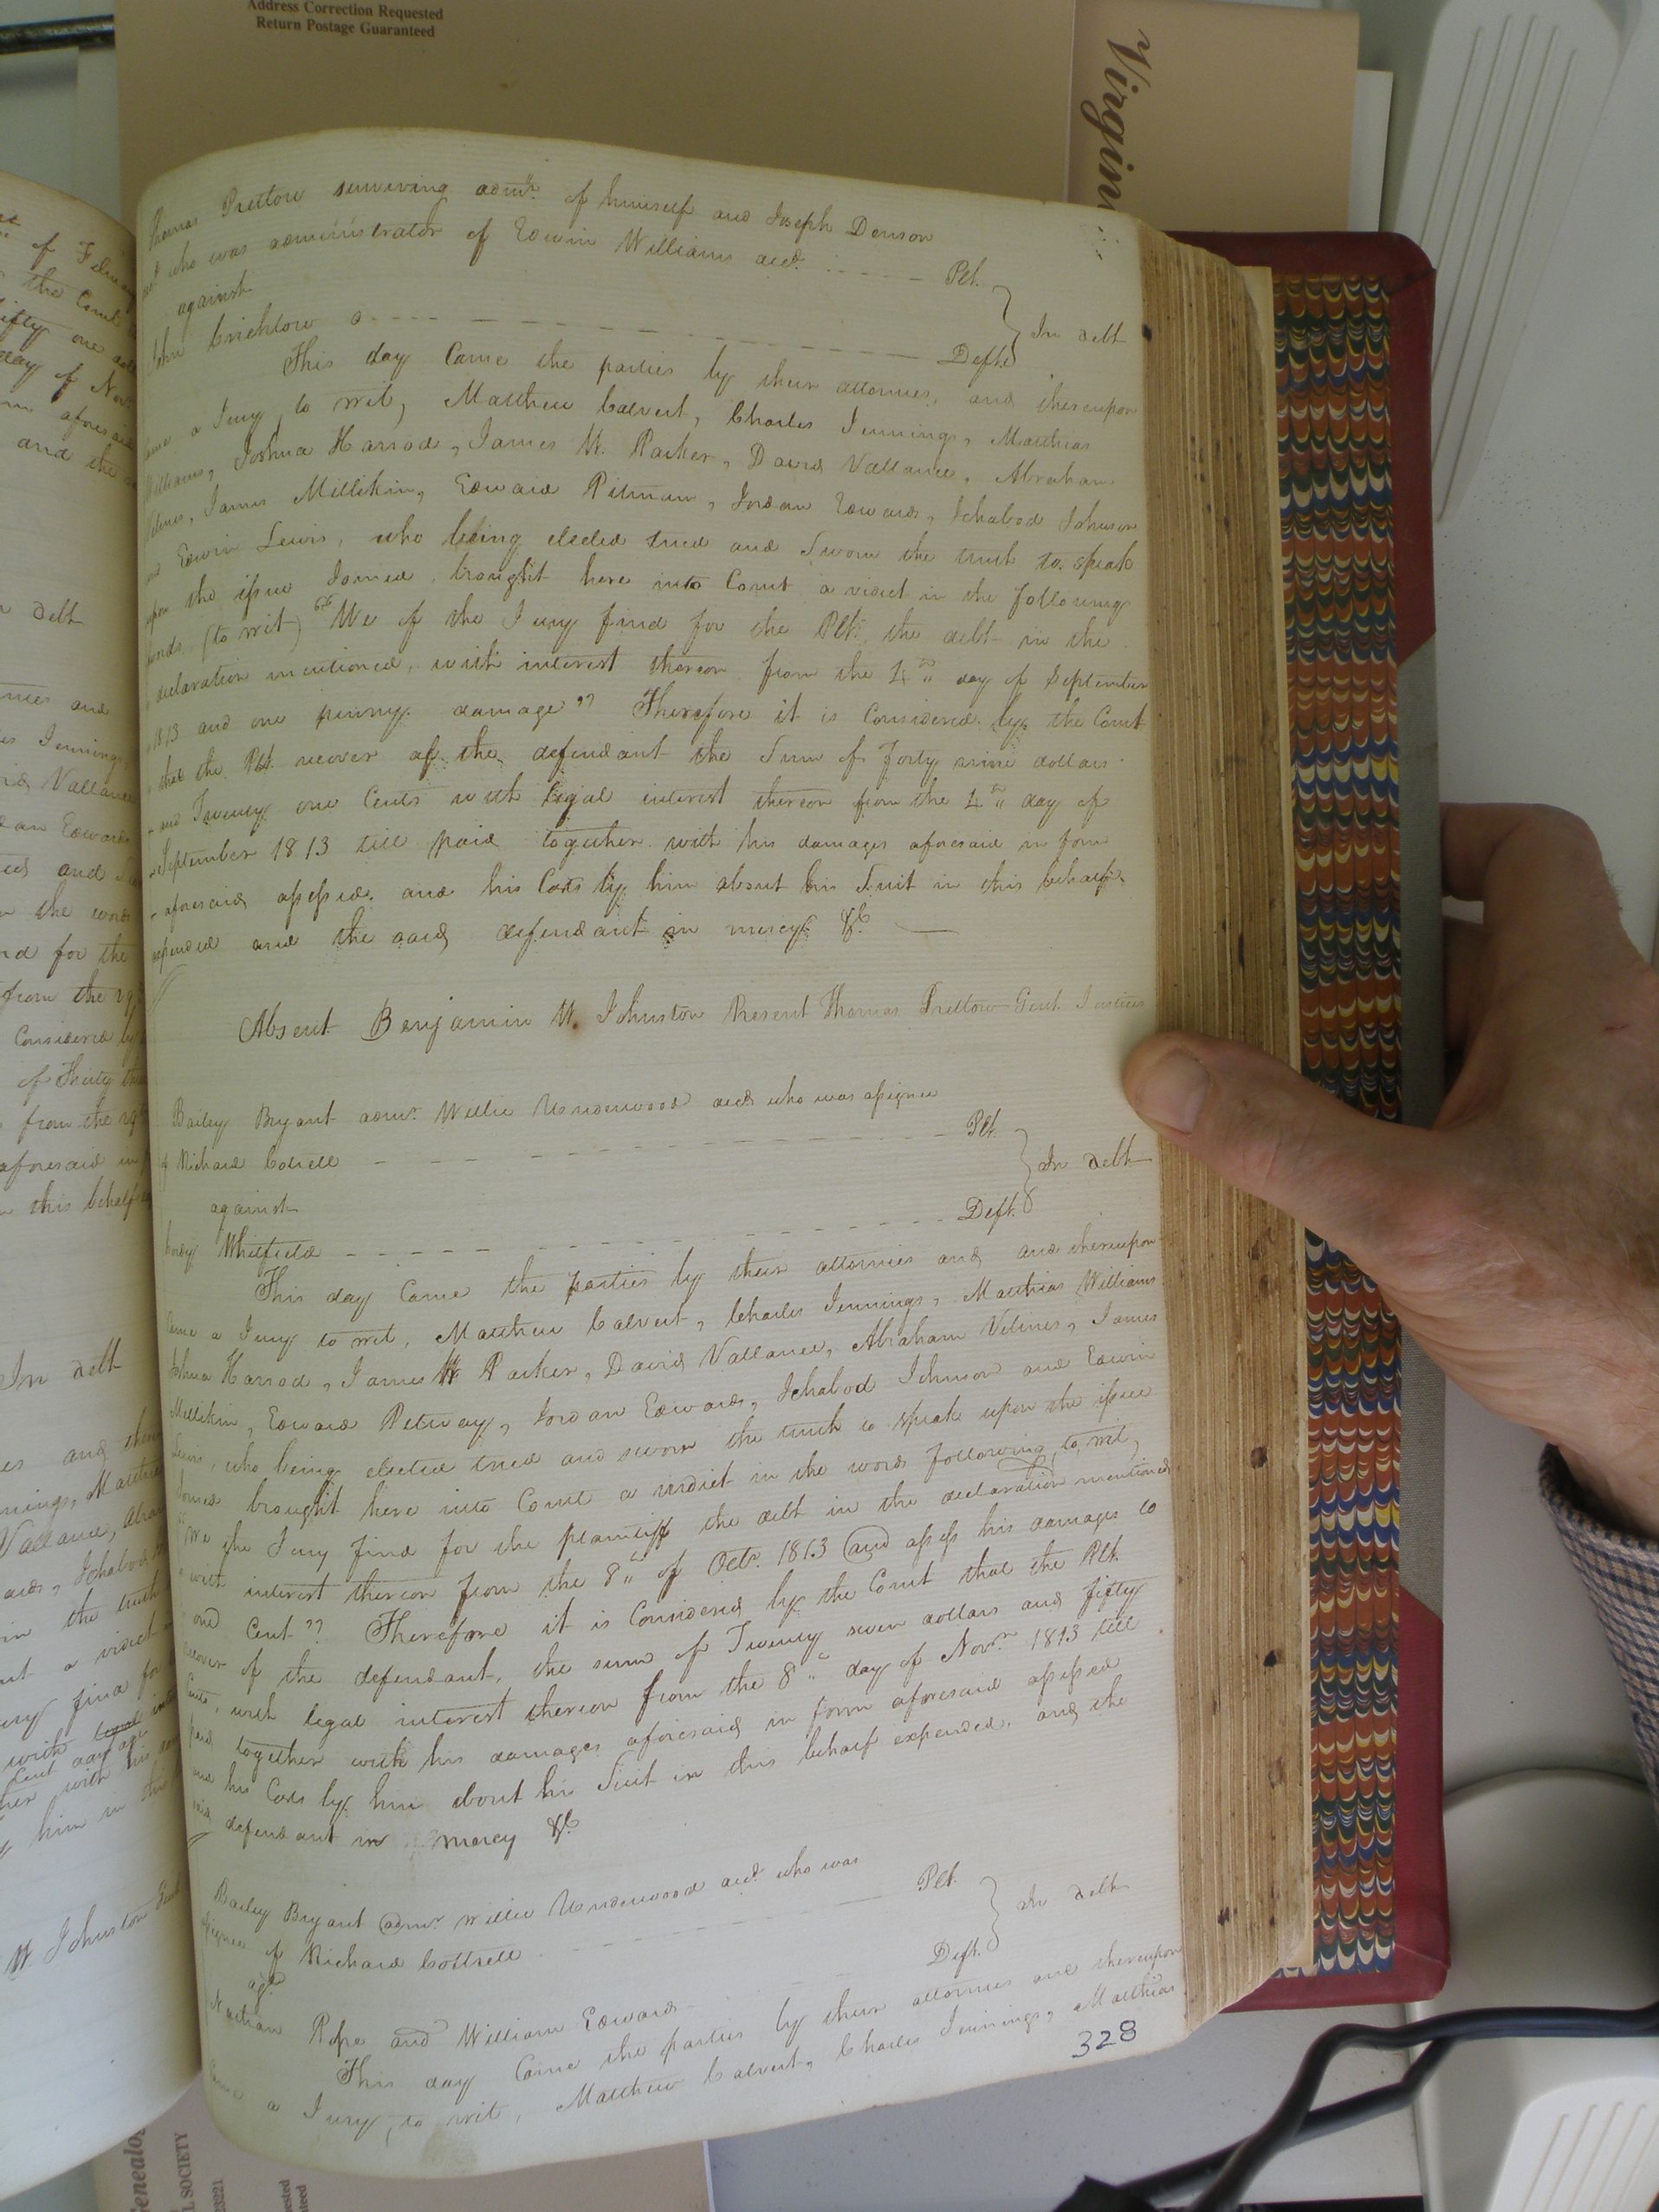 Address Correction Requested
Return Postage Guaranteed
Virgin
Thomas Pretlow surviving admr. of himself and Joseph Denson
decd who was administrator of Edwin Williams decd. Plt.
against
In debt
John Crichlow Deft.
This day Came the parties by their attornies, and thereupon
Came a Jury, to wit, Matthew Calvert, Charles Jennings, Matthias
Williams, Joshua Harrod, James W. Parker, David Vallance, Abraham
Velines, James Millikin, Edward Pitman, Jordan Edwards, Ichabod Johnson
and Edwin Lewis, who being elected tried and sworn the truth to speak
upon the issue Joined, brought here into Court a vidict in the following
words, (to wit) "We of the Jury find for the Plt. the debt in the
declaration mentioned, with interest thereon from the 4th day of September
1813 and one penny damage" Therefore it is Considered by the Court
that the Plt. recover of the defendant the Sum of Forty nine dollars
and Twenty one Cents with legal interest thereon from the 4th day of
September 1813 till paid together with his damages aforesaid in form
aforesaid assessed, and his Costs by him about his Suit in this behalf
expended and the said defendant in mercy &c.
Absent Benjamin W. Johnston Present Thomas Pretlow Gent. Justices
Bailey Bryant admr. Willie Underwood decd who was assignee
of Richard Cottrell Plt.
In debt
against
Whitfield Deft.
This day Came the parties by their attornies and and thereupon
Came a Jury to wit, Matthew Calvert, Charles Jennings, Matthias Williams
Joshua Harrod, James W Parker, David Vallance, Abraham Velines, James
Millikin, Edward Petway, Jordan Edwards, Ichabod Johnson and Edwin
Lewis, who being elected tried and sworn the truth to speak upon the issue
Joined brought here into Court a verdict in the words following, to wit,
"We the Jury find for the plaintiff the debt in the declaration mentioned,
with interest thereon from the 8th of Octr. 1813 and assess his damages to
one Cent" Therefore it is Considered by the Court that the Plt.
recover of the defendant, the sum of Twenty seven dollars and fifty
Cents, with legal interest thereon from the 8th day of Novr. 1813 till
paid together with his damages aforesaid in form aforesaid assessed
and his Costs by him about his Suit in this behalf expended, and the
said defendant in mercy &c.
Bailey Bryant admr. Willie Underwood decd. who was
assignee of Richard Cottrell Plt.
In debt
agt.
Nathan Pope and William Edwards Deft.
This day Came the parties by their attornies and thereupon
Came a Jury, to wit, Matthew Calvert, Charles Jennings, Matthias
328
SOCIETY
23221